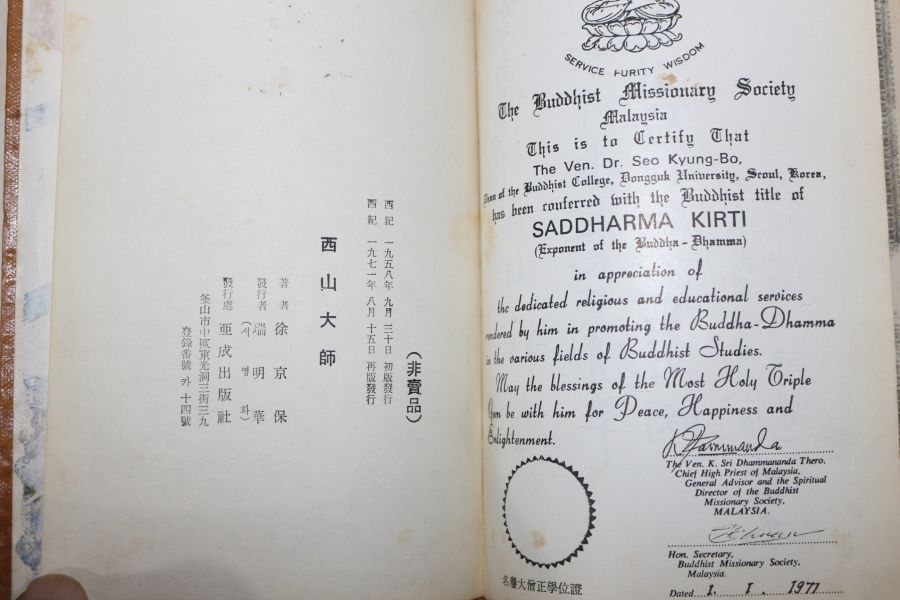 (非賣品)
西紀 一九五八年 九月 三十日 初版發行
西紀 一九七一年 八月 十五日 再版發行
西山大師
著者 徐京保
發行者 瑞明華
(서명화)
發行處 亜成出版社
釜山市中區東光洞三街三九
登錄番號 카 十四號
SERVICE PURITY WISDOM
The Buddhist Missionary Society
Malaysia
This is to Certify That
The Ven. Dr. Seo Kyung-Bo,
of the Buddhist College, Dongguk University, Seoul, Korea,
has been conferred with the Buddhist title of
SADDHARMA KIRTI
(Exponent of the Buddha-Dhamma)
in appreciation of
the dedicated religious and educational services
rendered by him in promoting the Buddha-Dhamma
in the various fields of Buddhist Studies.
May the blessings of the Most Holy Triple
Gem be with him for Peace, Happiness and
Enlightenment.
K Dhammananda
The Ven. K. Sri Dhammananda Thero,
Chief High Priest of Malaysia,
General Advisor and the Spiritual
Director of the Buddhist
Missionary Society,
MALAYSIA.
Hon. Secretary,
Buddhist Missionary Society,
Malaysia.
Dated 1. 1. 1971
名譽大僧正學位證